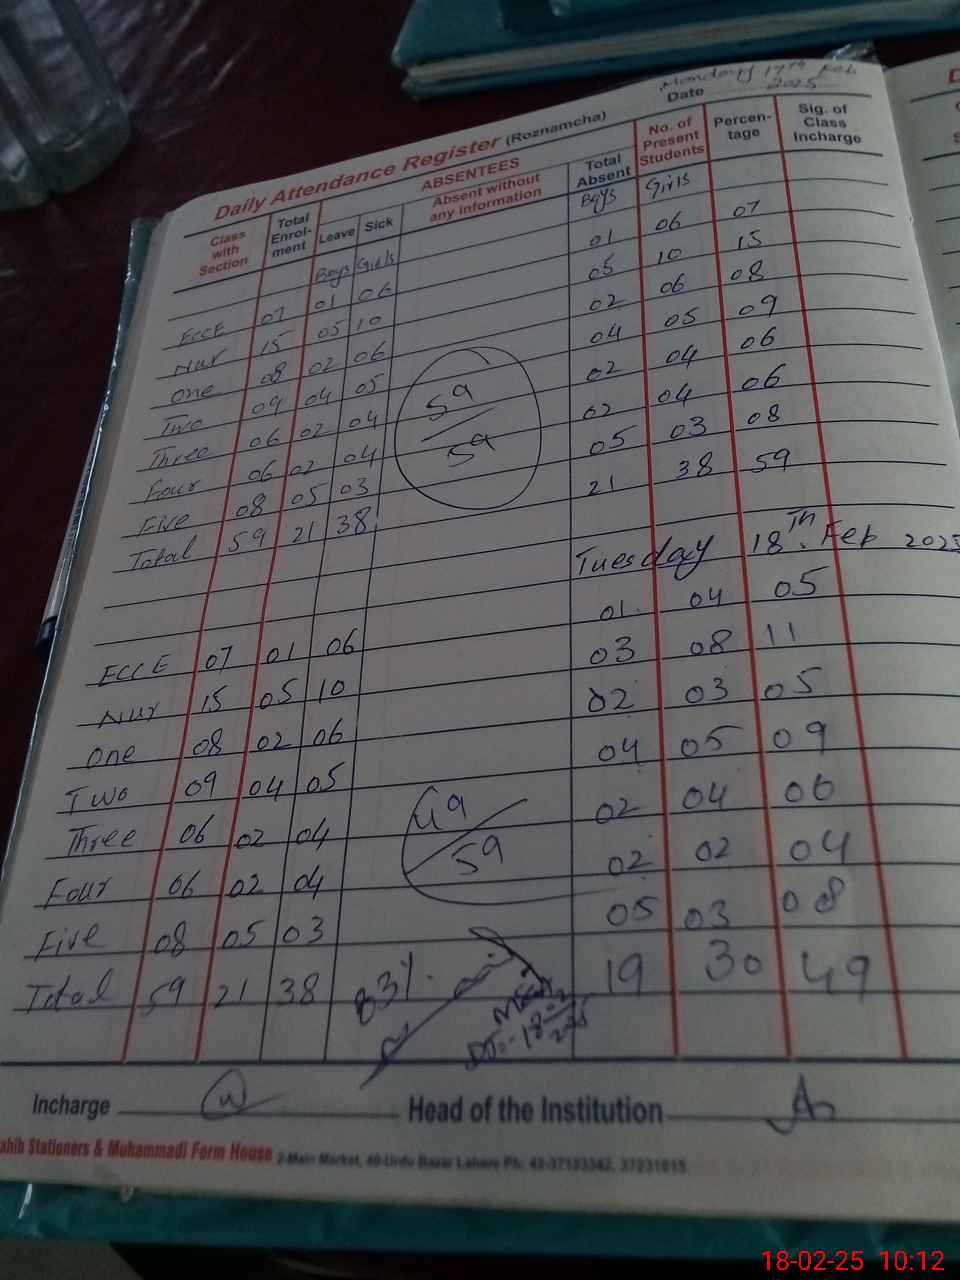 Monday 17th Feb
Date 2025
Daily Attendance Register (Roznamcha)
Class with Section Total Enrol- ment ABSENTEES Leave Sick Absent without any information Total Absent No. of Present Students Percen- tage Sig. of Class Incharge
Boys Girls Boys Girls
ECCE 07 01 06 01 06 07
Nur 15 05 10 05 10 15
One 08 02 06 02 06 08
Two 09 04 05 04 05 09
Three 06 02 04 02 04 06
Four 06 02 04 02 04 06
Five 08 05 03 05 03 08
Total 59 21 38 21 38 59
59
59
Tuesday 18.Th Feb 2025
ECCE 07 01 06 01 04 05
Nur 15 05 10 03 08 11
One 08 02 06 02 03 05
Two 09 04 05 04 05 09
Three 06 02 04 02 04 06
Four 06 02 04 02 02 04
Five 08 05 03 05 03 08
Total 59 21 38 19 30 49
49
59
83%.
Incharge Head of the Institution
ahib Stationers & Muhammadi Form House 2-Main Market, 40-Urdu Bazar Lahore Ph: 42-37123342, 37231015
18-02-25 10:12